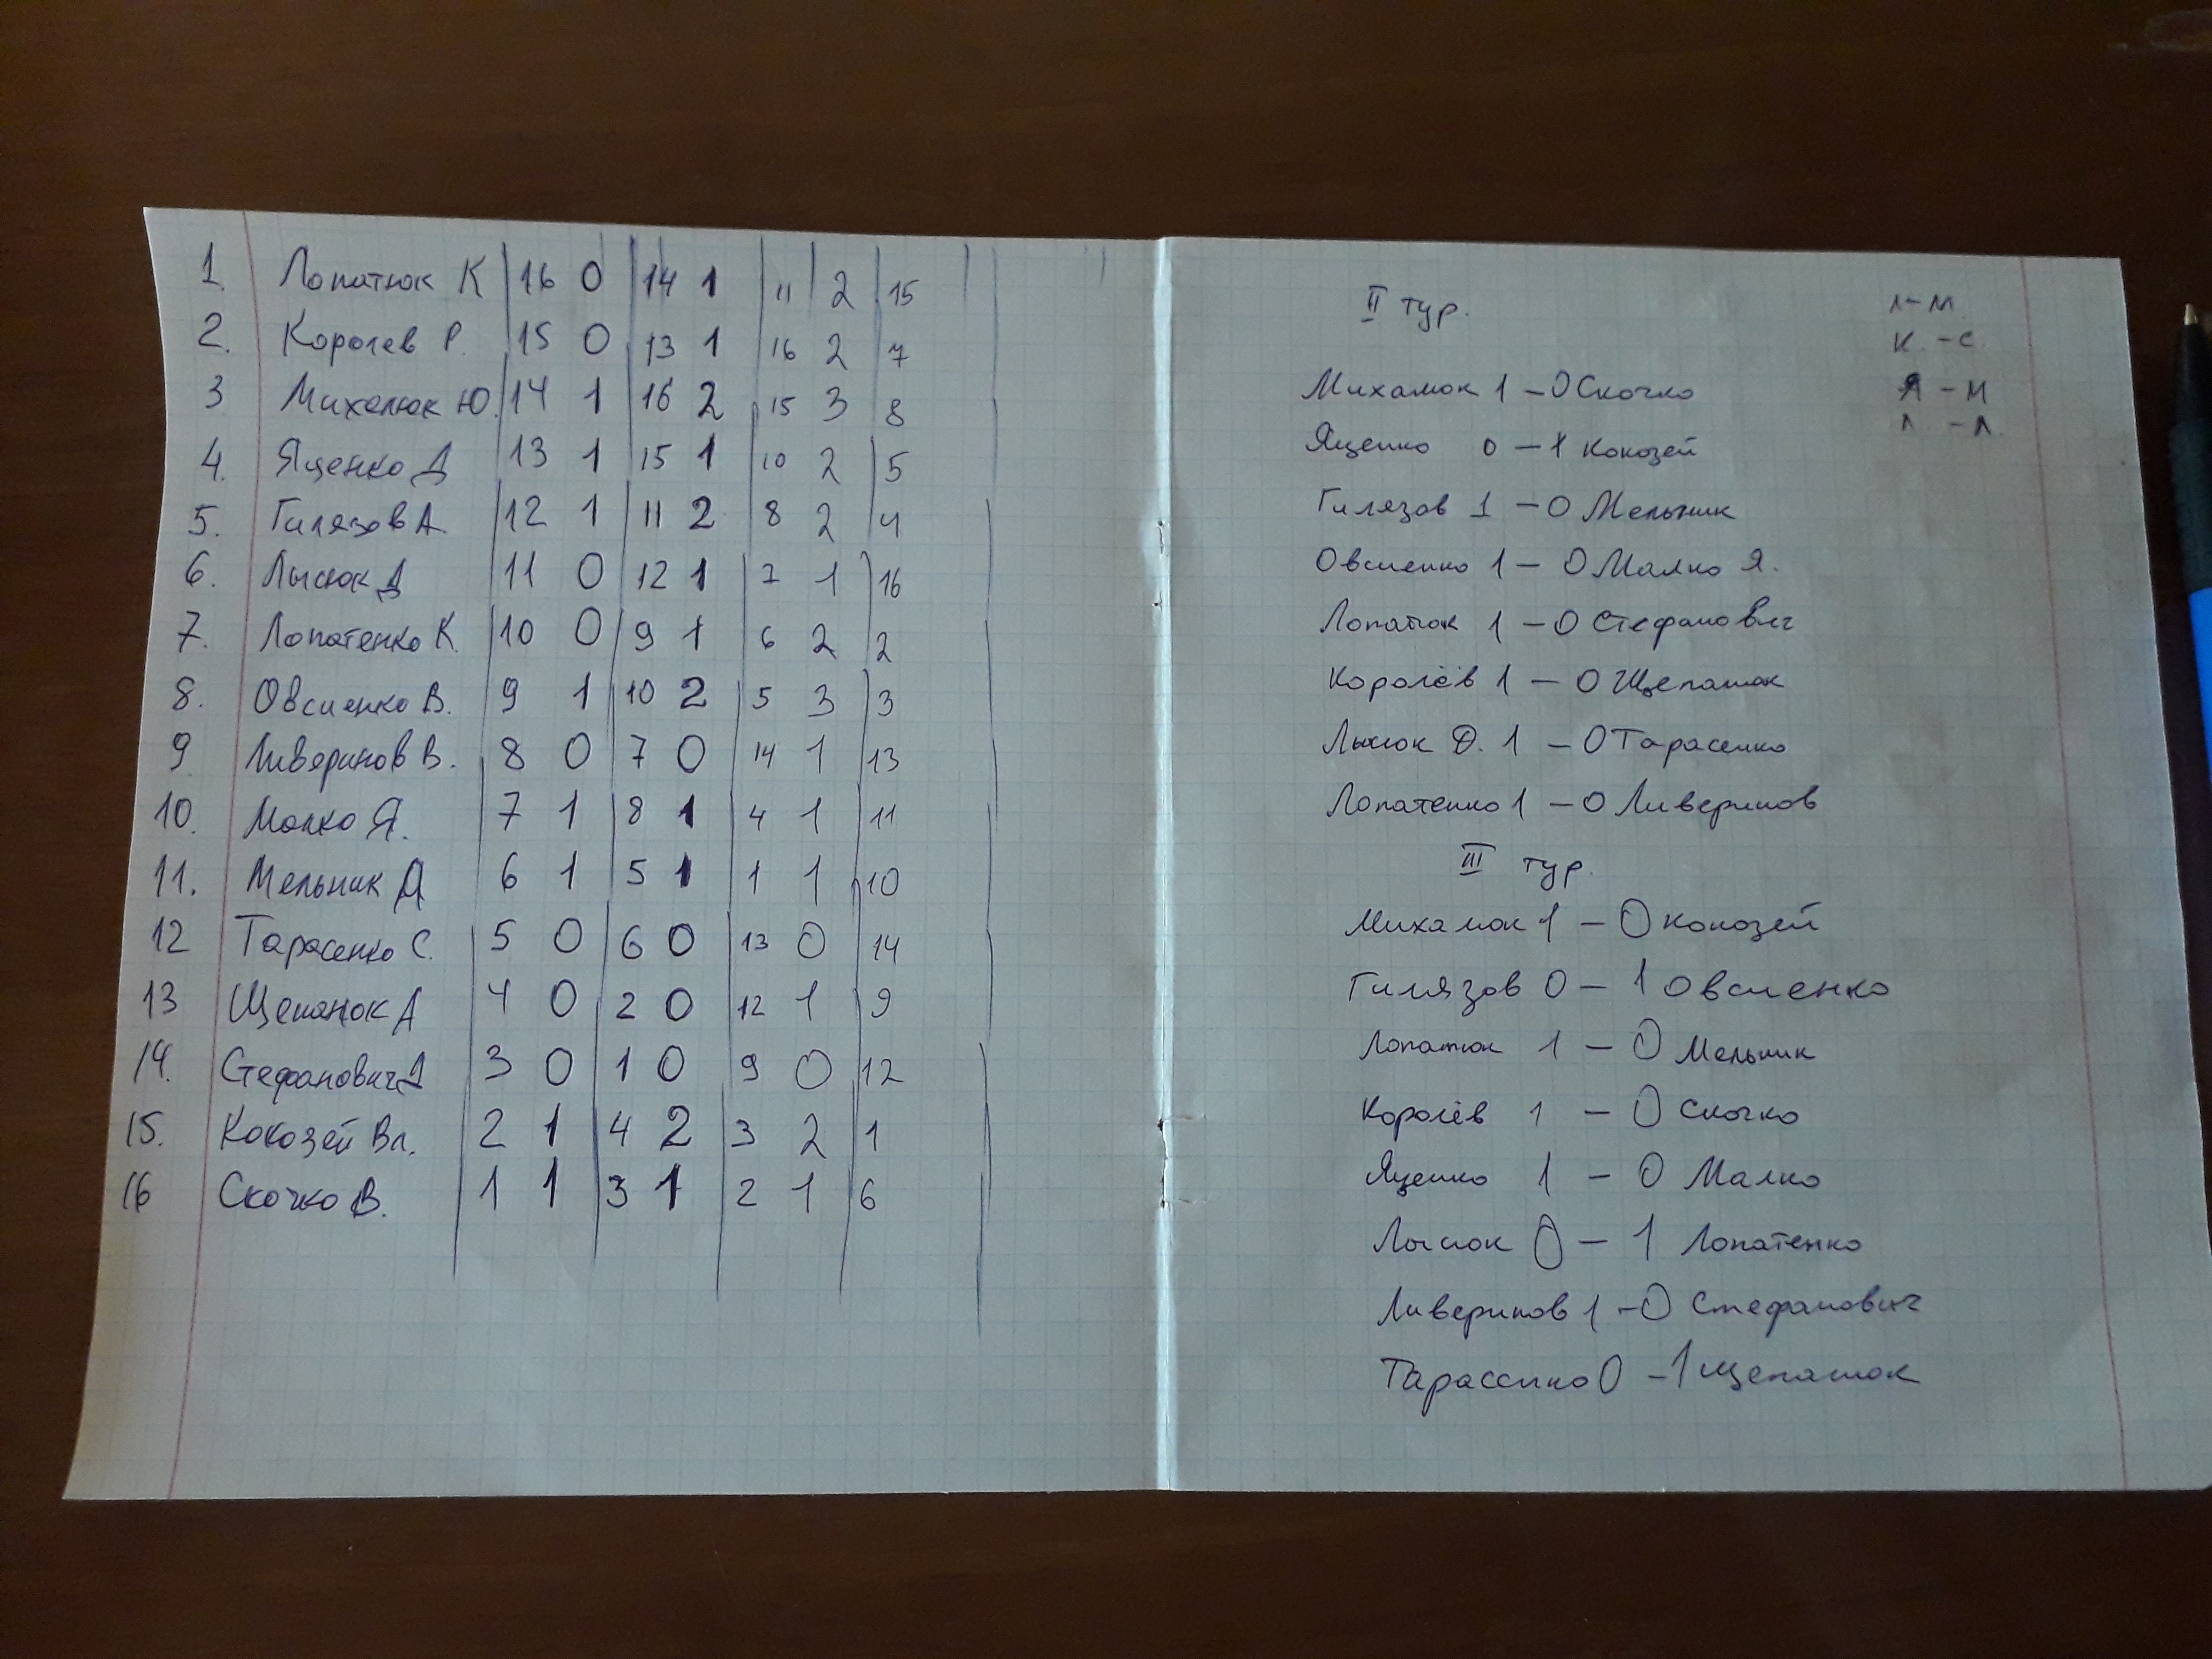 1. Лопатюк К 16 0 14 1 11 2 15
2. Королев Р. 15 0 13 1 16 2 7
3 Михалюк Ю. 14 1 16 2 15 3 8
4. Яценко Д 13 1 15 1 10 2 5
5. Гилязов А. 12 1 11 2 8 2 4
6. Лысюк Д 11 0 12 1 7 1 16
7. Лопатенко К. 10 0 9 1 6 2 2
8. Овсиенко В. 9 1 10 2 5 3 3
9 Ливеринов В. 8 0 7 0 14 1 13
10. Малко Я. 7 1 8 1 4 1 11
11. Мельник Д 6 1 5 1 1 1 10
12 Тарасенко С. 5 0 6 0 13 0 14
13 Щепанюк А 4 0 2 0 12 1 9
14. Стефанович Д 3 0 1 0 9 0 12
15. Кокозей Вл. 2 1 4 2 3 2 1
16 Скочко В. 1 1 3 1 2 1 6
II тур.
Михалюк 1 – 0 Скочко
Яценко 0 – 1 Кокозей
Гилязов 1 – 0 Мельник
Овсиенко 1 – 0 Малко Я.
Лопатюк 1 – 0 Стефанович
Королёв 1 – 0 Щепанюк
Лысюк Д. 1 – 0 Тарасенко
Лопатенко 1 – 0 Ливеринов
Л – М.
К. – С.
Я – М
Л. – Л.
III тур.
Михалюк 1 – 0 Кокозей
Гилязов 0 – 1 Овсиенко
Лопатюк 1 – 0 Мельник
Королёв 1 – 0 Скочко
Яценко 1 – 0 Малко
Лысюк 0 – 1 Лопатенко
Ливеринов 1 – 0 Стефанович
Тарасенко 0 – 1 Щепанюк